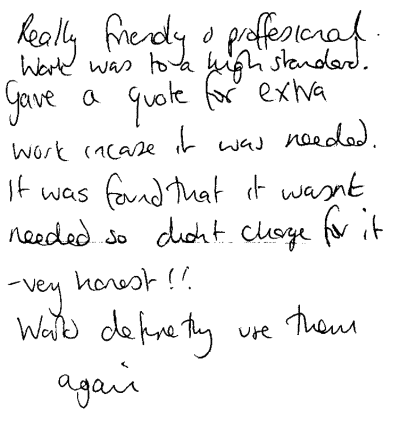 Really friendly & proffesional.
Work was to a high standard.
Gave a quote for extra
work incase it was needed.
It was found that it wasnt
needed so didn't charge for it
- very honest!!
Would definetly use them
again